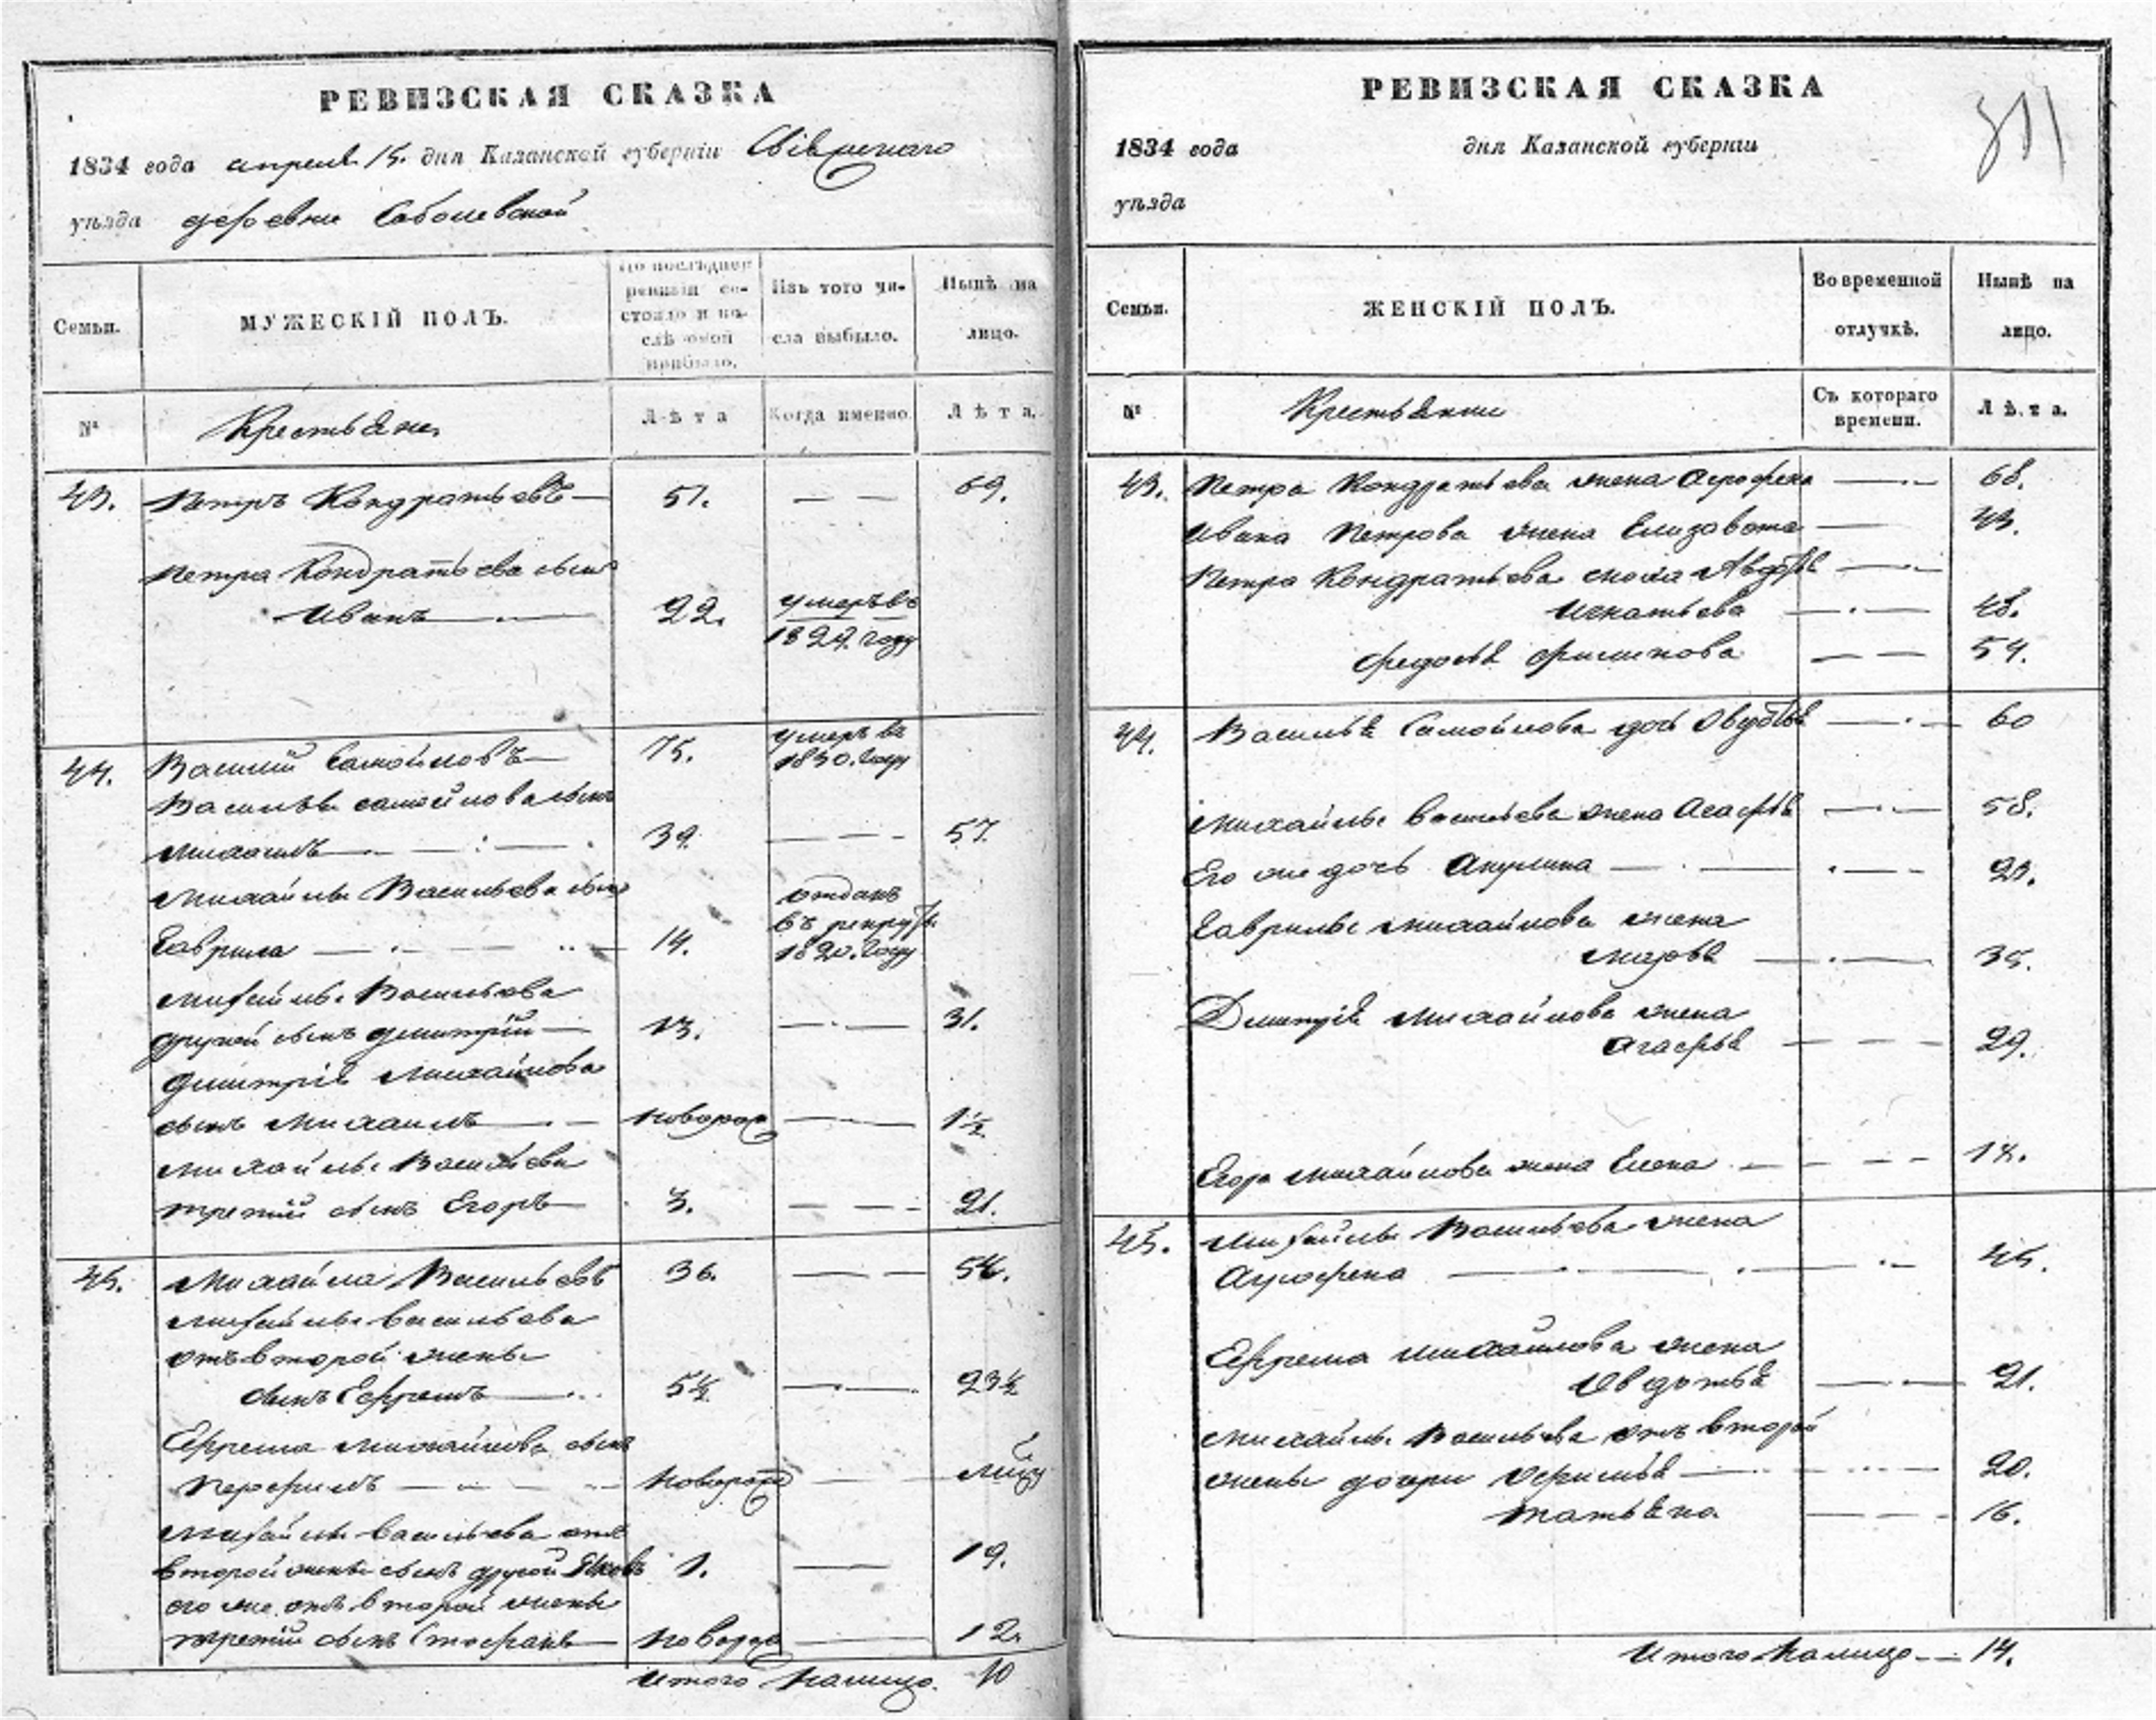 РЕВИЗСКАЯ СКАЗКА
1834 года апреля 15. дня Казанской губернiи
уѣзда деревни Соболевской
Семьи.
МУЖЕСКIЙ ПОЛЪ.
по послѣдней
ревизiи со-
стояло и по-
слѣ оной
прибыло.
Изъ того чи-
сла выбыло.
Нынѣ на
лицо.
№
Крестьяне
Лѣта
Когда именно.
Лѣта.
43. Петръ Кондратьевъ — 51. — — 69.
Петра Кондратьева сынъ
Иванъ — 22. умеръ въ
1829. году
44. Василий Самойловъ — 75. умеръ въ
1830. году
Василья самойлова сынъ
Михаилъ — 39. — — 57.
Михайлы Васильева сынъ
Гаврила — 14. отданъ
въ рекруты
1820. году
Михайлы Васильева
другой сынъ Дмитрiй — 13. — 31.
Дмитрiя Михайлова
сынъ Михаилъ — новорож — 1½
Михайлы Васильева
третий сынъ Егоръ — 3. — — 21.
45. Михайла Васильевъ 36. — — 54.
Михайлы Васильева
отъ второй жены
сынъ Ефремъ — 5½ — 23½
Ефрема Михайлова сынъ
Перфилъ — новорож —
Михайлы Васильева отъ
второй жены сынъ другой Яковъ 1. — 19.
его же отъ второй жены
третий сынъ Стафанъ — новорож — 12.
Итого налицо. 10
РЕВИЗСКАЯ СКАЗКА
311
1834 года дня Казанской губернiи
уѣзда
Семьи.
ЖЕНСКIЙ ПОЛЪ.
Во временной
отлучкѣ.
Нынѣ на
лицо.
№
Крестьянки
Съ котораго
времени.
Лѣта.
43. Петра Кондратьева жена Агрофена — 68.
Ивана Петрова жена Елизавета — 43.
Петра Кондратьева сноха Авдотья —
Игнатьева — 48.
Федосья Филипова — — 54.
44. Василья Самойлова дочь Овдотья — 60
Михайлы Васильева жена Агафья — 58.
Его же дочь Акулина — 23.
Гаврилы Михайлова жена
Марья — 35.
Дмитрiя Михайлова жена
Агафья — — — 29.
Егора Михайлова жена Елена — — — 18.
45. Михайлы Васильева жена
Агрофена — 45.
Ефрема Михайлова жена
Овдотья — 21.
Михайлы Васильева отъ второй
жены дочери Офимья — 20.
Татьяна. — — — 16.
Итого налицо — 14.